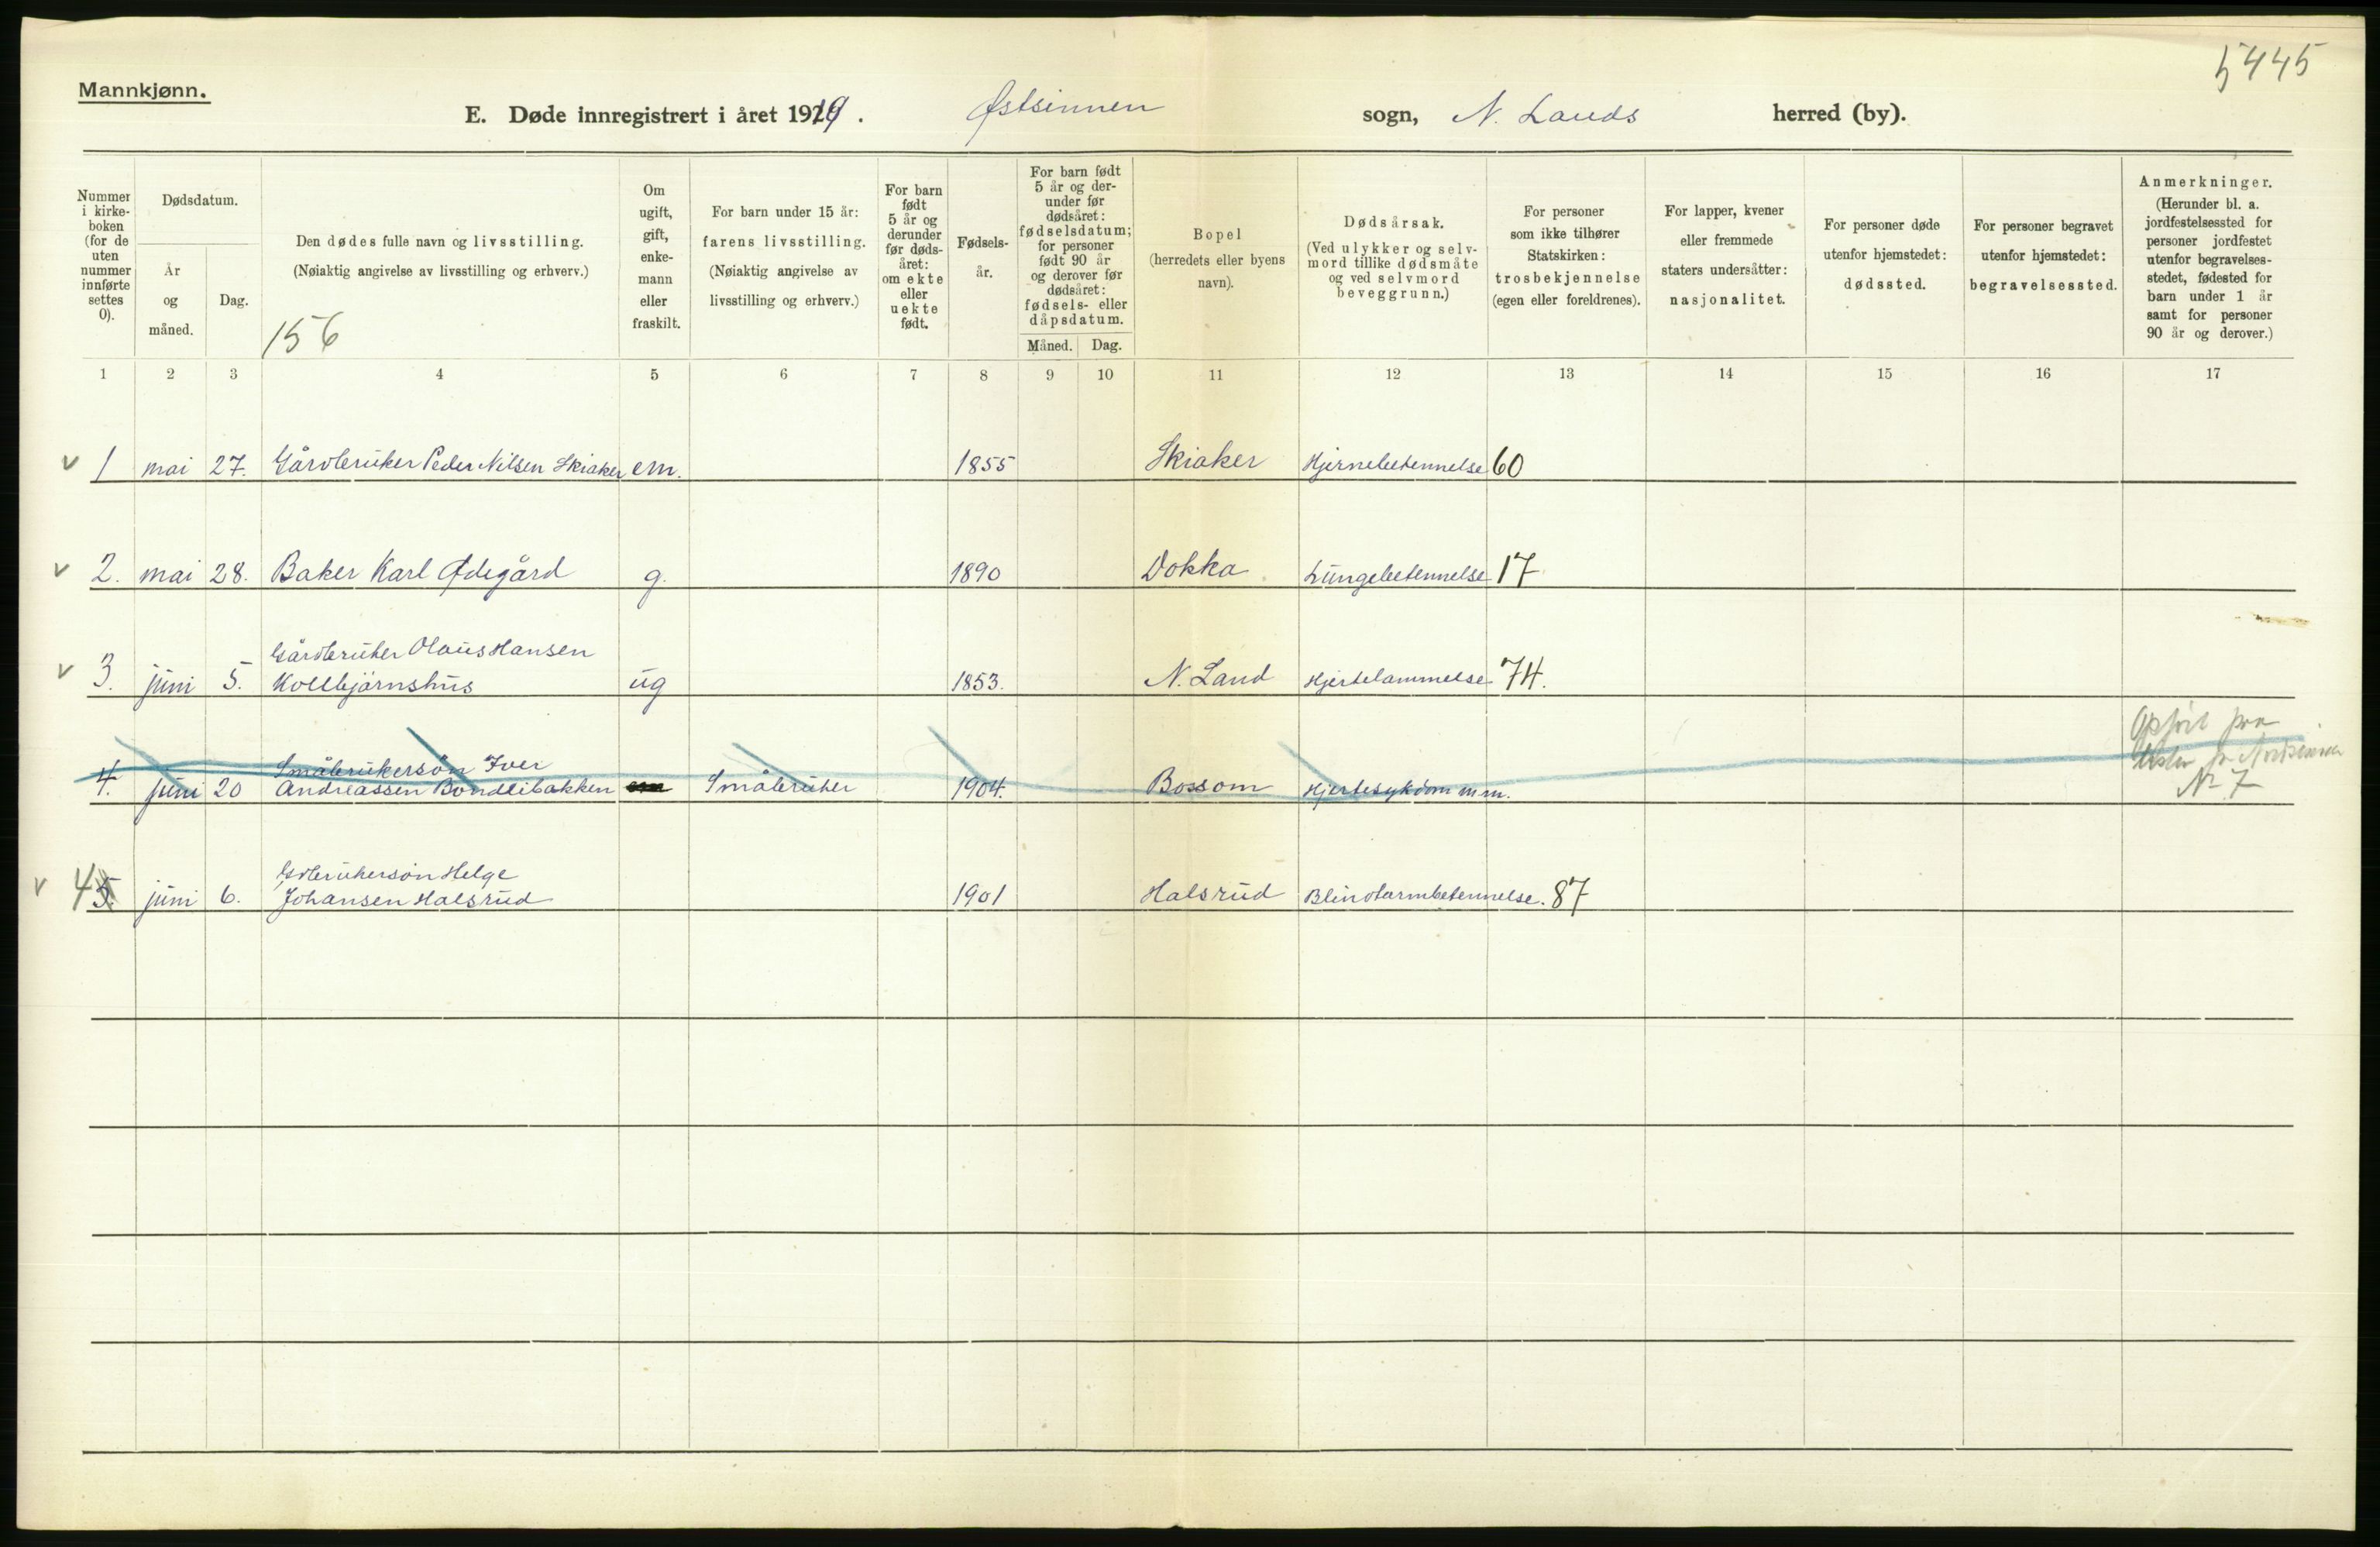 5445
Mannkjønn.
E. Døde innregistrert i året 1919. Østsinnen sogn, N. Lands herred (by).
Nummer i kirke- boken (for de uten nummer innførte settes 0).
Dødsdatum.
År og måned.
Dag.
Den dødes fulle navn og livsstilling.
(Nøiaktig angivelse av livsstilling og erhverv.)
156
Om ugift, gift, enke- mann eller fraskilt.
For barn under 15 år:
farens livsstilling.
(Nøiaktig angivelse av
livsstilling og erhverv.)
For barn født 5 år og derunder før døds- året: om ekte eller uekte født.
Fødsels- år.
For barn født 5 år og der- under før dødsåret: fødselsdatum; for personer født 90 år og derover før dødsåret: fødsels- eller dåpsdatum.
Måned. Dag.
Bopel
(herredets eller byens navn).
Dødsårsak.
(Ved ulykker og selv- mord tillike dødsmåte og ved selvmord beveggrunn.)
For personer som ikke tilhører Statskirken: trosbekjennelse (egen eller foreldrenes).
For lapper, kvener eller fremmede staters undersåtter: nasjonalitet.
For personer døde utenfor hjemstedet: dødssted.
For personer begravet utenfor hjemstedet: begravelsessted.
Anmerkninger.
(Herunder bl. a. jordfestelsessted for personer jordfestet utenfor begravelses- stedet, fødested for barn under 1 år samt for personer 90 år og derover.)
1 2 3 4 5 6 7 8 9 10 11 12 13 14 15 16 17
v 1 mai 27. Gårdbruker Peder Nilsen Skiaker em. 1855 Skiaker Hjernebetennelse 60
v 2. mai 28. Baker Karl Ødegård g. 1890 Dokka Lungebetennelse 17
Gårdbruker Olaus Hansen
v 3. juni 5. Kollbjørnshus ug 1853. N. Land Hjertelammelse 74.
Opført paa
Småbrukersøn Iver
4. juni 20 Andreassen Bondlibakken em Småbruker 1904. Bossom Hjertesykdom m.m. No 7
Gdbrukersøn Helge
v 4 5. juni 6. Johansen Halsrud 1901 Halsrud Blindtarmbetennelse. 87